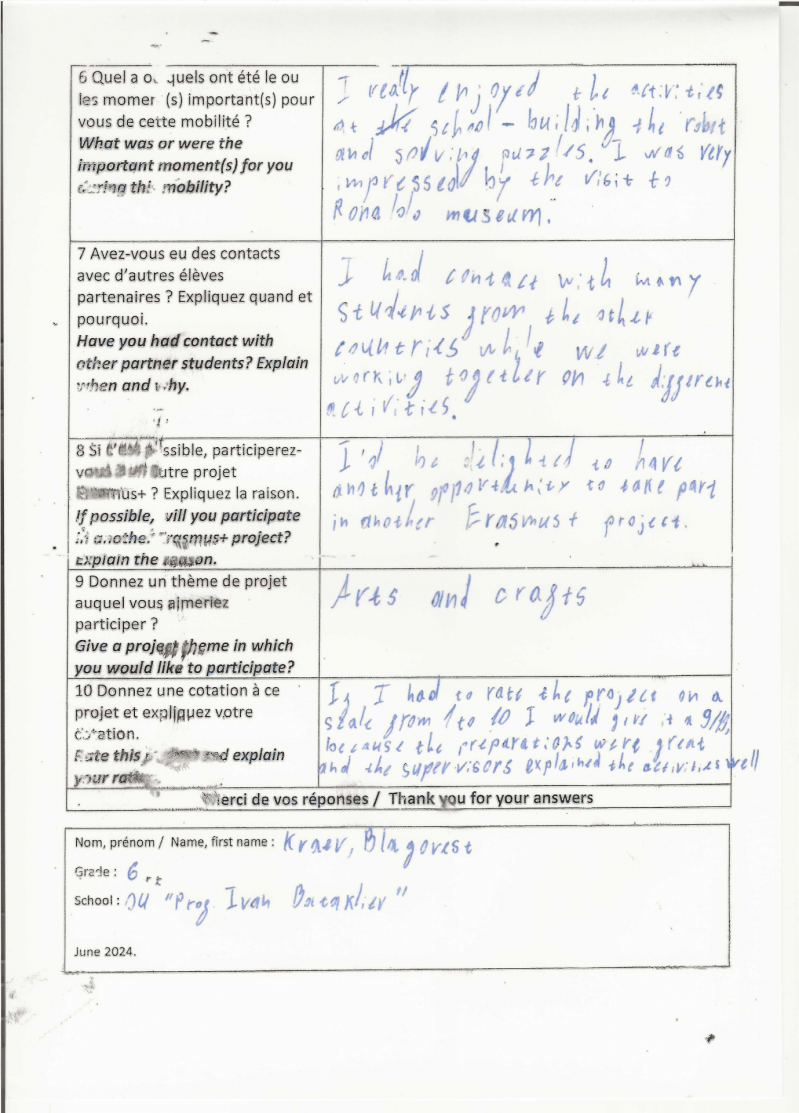 6 Quel a quels ont été le ou
les momen (s) important(s) pour
vous de cette mobilité ?
What was or were the
important moment(s) for you
during this mobility?
I really enjoyed the activities
at the school - building the robot
and solving puzzles. I was very
impressed by the visit to
Ronaldo museum.
7 Avez-vous eu des contacts
avec d'autres élèves
partenaires ? Expliquez quand et
pourquoi.
Have you had contact with
other partner students? Explain
when and why.
I had contact with many
students from the other
countries while we were
working together on the different
activities.
8 Si c'est possible, participerez-
vous à un autre projet
Erasmus+ ? Expliquez la raison.
If possible, will you participate
in another Erasmus+ project?
Explain the reason.
I'd be delighted to have
another opportunity to take part
in another Erasmus+ project.
9 Donnez un thème de projet
auquel vous aimeriez
participer ?
Give a project theme in which
you would like to participate?
Arts and crafts
10 Donnez une cotation à ce
projet et expliquez votre
cotation.
Rate this and explain
your rating
If I had to rate the project on a
scale from 1 to 10 I would give it a 9/10,
because the preparations were great
and the supervisors explained the activities well
Merci de vos réponses / Thank you for your answers
Nom, prénom / Name, first name : Kraev, Blagovest
Grade : 6
School : OU "Prof. Ivan Batakliev"
June 2024.